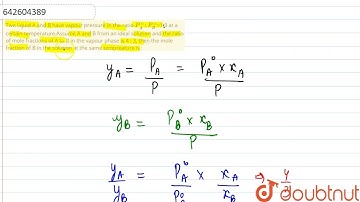 642604389
Two liquid A and B have vapour pressure in the ratio P°A : P°B = 1 : 3 at a
certain temperature. Assume A and B from an ideal solution and the ratio
of mole fractions of A to B in the vapour phase is 4 : 3, then the mole
fraction of B in the solution at the same temperature is
yA = PA / P = PA° × xA / P
yB = PB° × xB / P
yA / yB = PA° / PB° × xA / xB ⇒
doubtnut